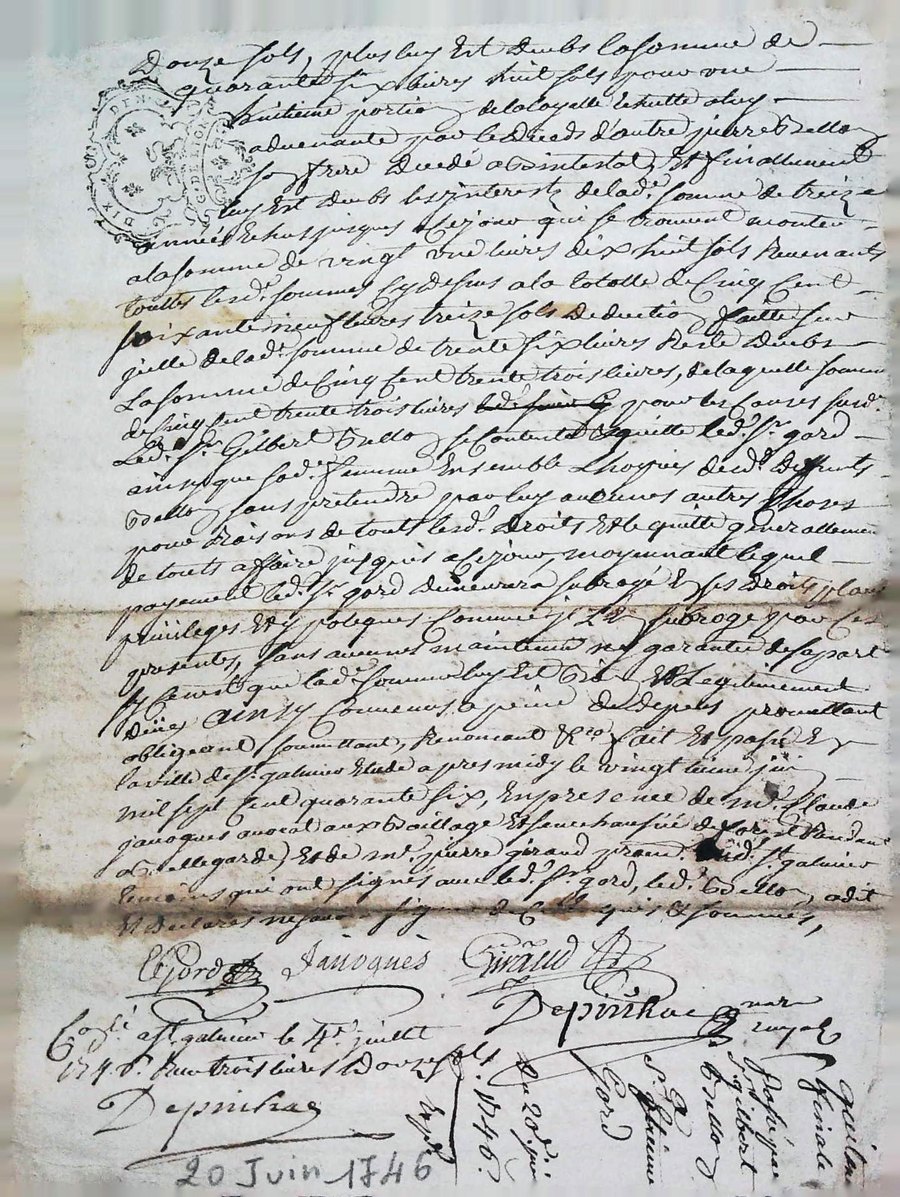 Douze sols, plus luy Est deubs la somme de
quarante six livres huit sols pour une
huitieme portion de la loyalle Echutte a luy
advenante par le Deceds d'autre pierre Bellon
son frere Decedé abintestat, Et finallement
luy Est deubs les interets de lad. somme de treize
années Echus jusques a ce jour qui se trouvent monter
a la somme de vingt une livres dix huit sols Revenants
touttes lesd. sommes cy dessus a la totalle de Cinq Cent
soixante neuf livres treize sols Deduction faitte sur
icelle de lad. somme de trente six livres Reste Deubs
La somme de Cinq Cent trente trois livres, de laquelle somme
de Cinq Cent trente trois livres pour les Causes susd.
Led. Sr. Gilbert Bellon se Contente Et quitte led. Sr. gord
ainsy que sad. femme Ensemble L'hoyries desd. Defunts
Bellon sans pretendre par luy aucunes autres Choses
pour Raisons de touts lesd. Droits Et le quitte generallement
de touts affaire jusques a ce jour, moyennant lequel
payement led. Sr. gord demeurera subrogé Es ses Droits, places
privileges Et ypoteques Comme il Le subroge par Ces
presentes, sans aucunes maintenue ny garantie de sa part
sy Ce n'est que lad. somme luy Est Bien Et Legitimement
Düe, Ainsy Convenus a peine de Depens promettant
obligeant, soumettant, Renoncant &ca fait Et passé En
la ville de St. galmier Etude apres midy le vingtieme juin
mil sept Cent quarante six, En presence de mr. Claude
janoques avocat aux Baillage Et senechaussée de forest Residant
a Bellegarde, Et de mr. pierre giraud St. galmier
temoins qui ont signés avec led. Sr. gord, led. Bellon a dit
Et declaré ne savoir signer de Ce Enquis Et sommés,
Gord Janoques Giraud
Depinhac
Collé a St. galmier le 4e. juillet
1746. Reçu trois livres Douze sols
Depinhac
Du 20. juin
1746.
quittance
finale
passée par
Sr. gilbert
Bellon
A
Sr.
Gord
20 Juin 1746